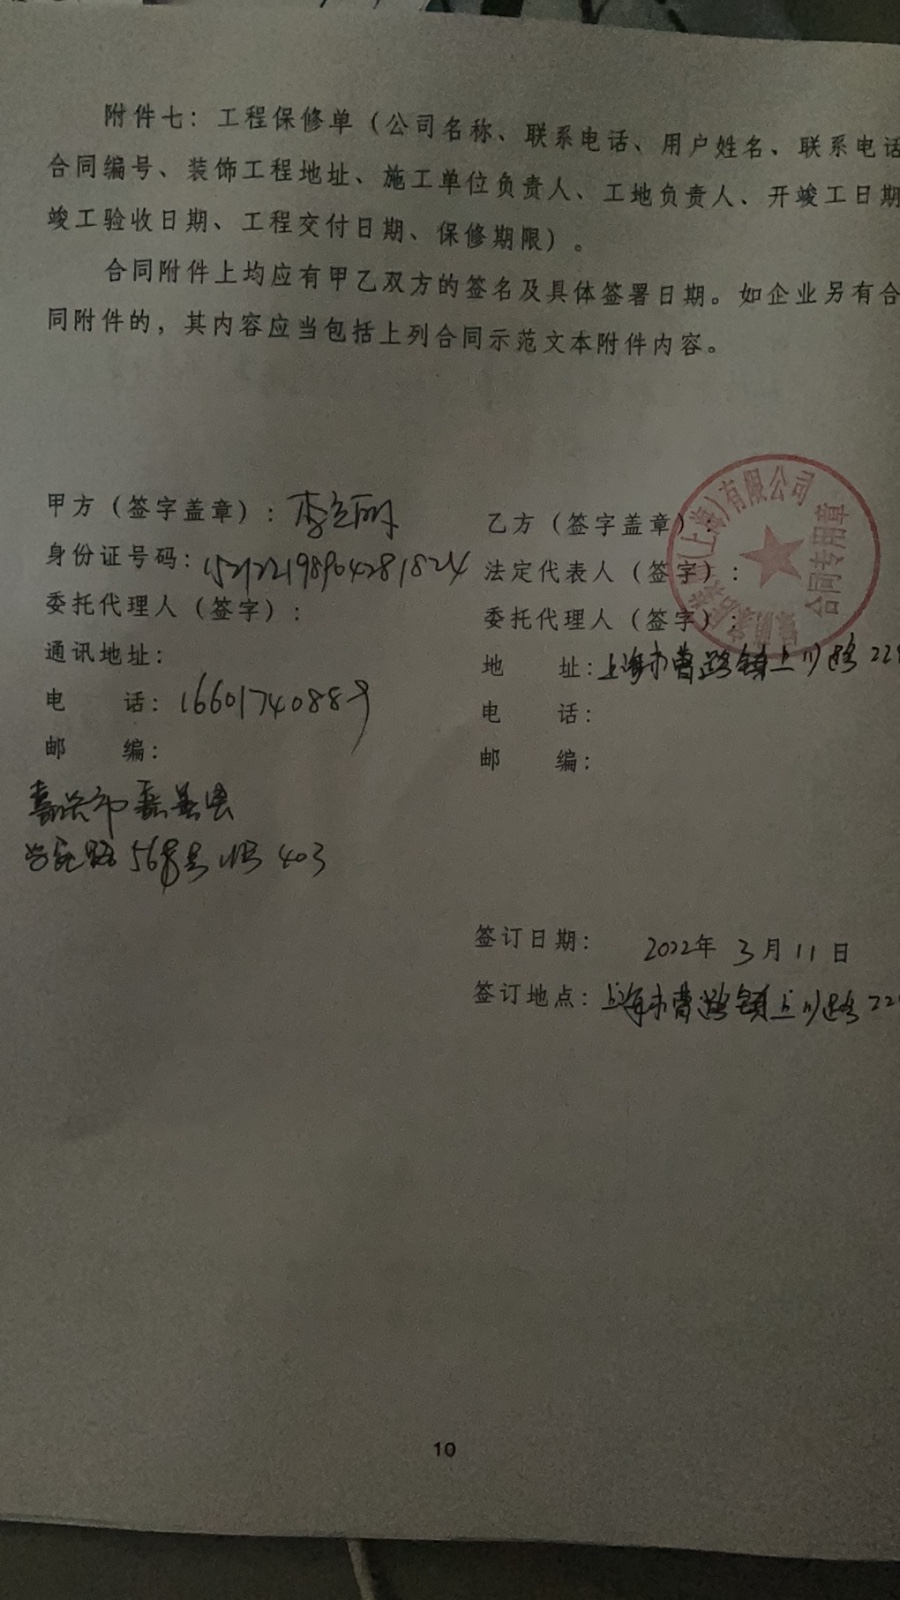 附件七：工程保修单（公司名称、联系电话、用户姓名、联系电话
合同编号、装饰工程地址、施工单位负责人、工地负责人、开竣工日期
竣工验收日期、工程交付日期、保修期限）。
合同附件上均应有甲乙双方的签名及具体签署日期。如企业另有合
同附件的，其内容应当包括上列合同示范文本附件内容。
甲方（签字盖章）：
身份证号码：152122198904281824
委托代理人（签字）：
通讯地址：
电 话：16601740889
邮 编：
嘉兴市嘉善县
568号 403
乙方（签字盖章）：
法定代表人（签字）：
委托代理人（签字）：
地 址：上海市曹路镇上川路22
电 话：
邮 编：
(上海)有限公司
合同专用章
签订日期： 2022年 3月 11日
签订地点：上海市曹路镇上川路22
10